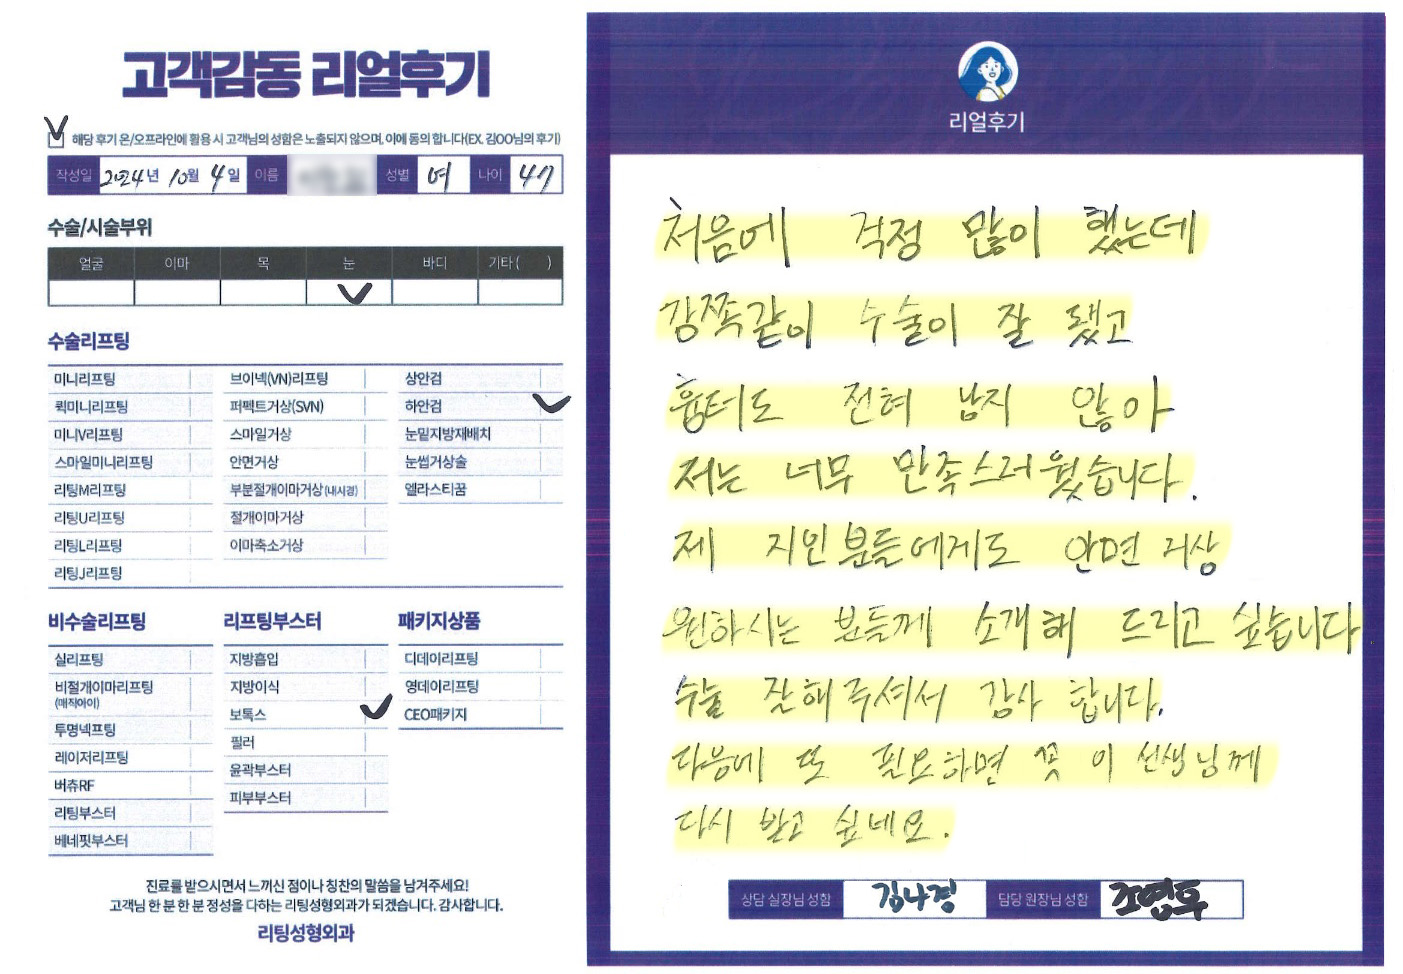 고객감동 리얼후기
해당 후기 온/오프라인에 활용 시 고객님의 성함은 노출되지 않으며, 이에 동의 합니다(EX. 김OO님의 후기)
작성일 2024년 10월 4일 이름 성별 여 나이 47
수술/시술부위
얼굴 이마 목 눈 바디 기타( )
수술리프팅
미니리프팅
퀵미니리프팅
미니V리프팅
스마일미니리프팅
리팅M리프팅
리팅U리프팅
리팅L리프팅
리팅J리프팅
브이넥(VN)리프팅
퍼펙트거상(SVN)
스마일거상
안면거상
부분절개이마거상(내시경)
절개이마거상
이마축소거상
상안검
하안검
눈밑지방재배치
눈썹거상술
엘라스티꿈
비수술리프팅
실리프팅
비절개이마리프팅
(매직아이)
투명넥프팅
레이저리프팅
버츄RF
리팅부스터
베네핏부스터
리프팅부스터
지방흡입
지방이식
보톡스
필러
윤곽부스터
피부부스터
패키지상품
디데이리프팅
영데이리프팅
CEO패키지
진료를 받으시면서 느끼신 점이나 칭찬의 말씀을 남겨주세요!
고객님 한 분 한 분 정성을 다하는 리팅성형외과가 되겠습니다. 감사합니다.
리팅성형외과
리얼후기
처음에 걱정 많이 했는데
감쪽같이 수술이 잘 됐고
흉터도 전혀 남지 않아
저는 너무 만족스러웠습니다.
제 지인분들에게도 안면 거상
원하시는 분들께 소개해 드리고 싶습니다
수술 잘해주셔서 감사 합니다.
다음에 또 필요하면 꼭 이 선생님께
다시 받고 싶네요.
상담 실장님 성함 김나경 담당 원장님 성함